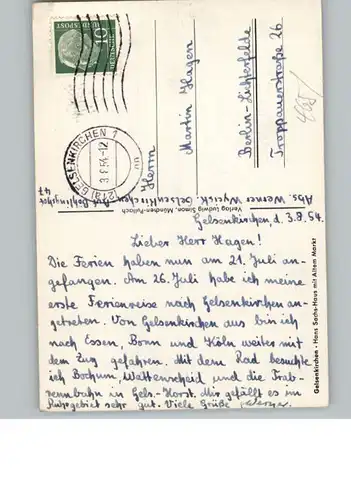 10
DEUTSCHE BUNDESPOST
(21a) GELSENKIRCHEN 1
3.8.54-12
Herrn
Martin Hagen
Berlin-Lichterfelde
Troppauerstraße 26
Abs. Werner
Gelsenkirchen
47
Verlag Ludwig Simon, München-Pullach
Gelsenkirchen, d. 3.8.54.
Lieber Herr Hagen!
Die Ferien haben nun am 21. Juli an-
gefangen. Am 26. Juli habe ich meine
erste Ferienreise nach Gelsenkirchen an-
getreten. Von Gelsenkirchen aus bin ich
nach Essen, Bonn und Köln weiter mit
dem Zug gefahren. Mit dem Rad besuchte
ich Bochum, Wattenscheid und die Trab-
rennbahn in Gels.-Horst. Mir gefällt es im
Ruhrgebiet sehr gut. Viele Grüße Werner
Gelsenkirchen - Hans Sachs-Haus mit Altem Markt